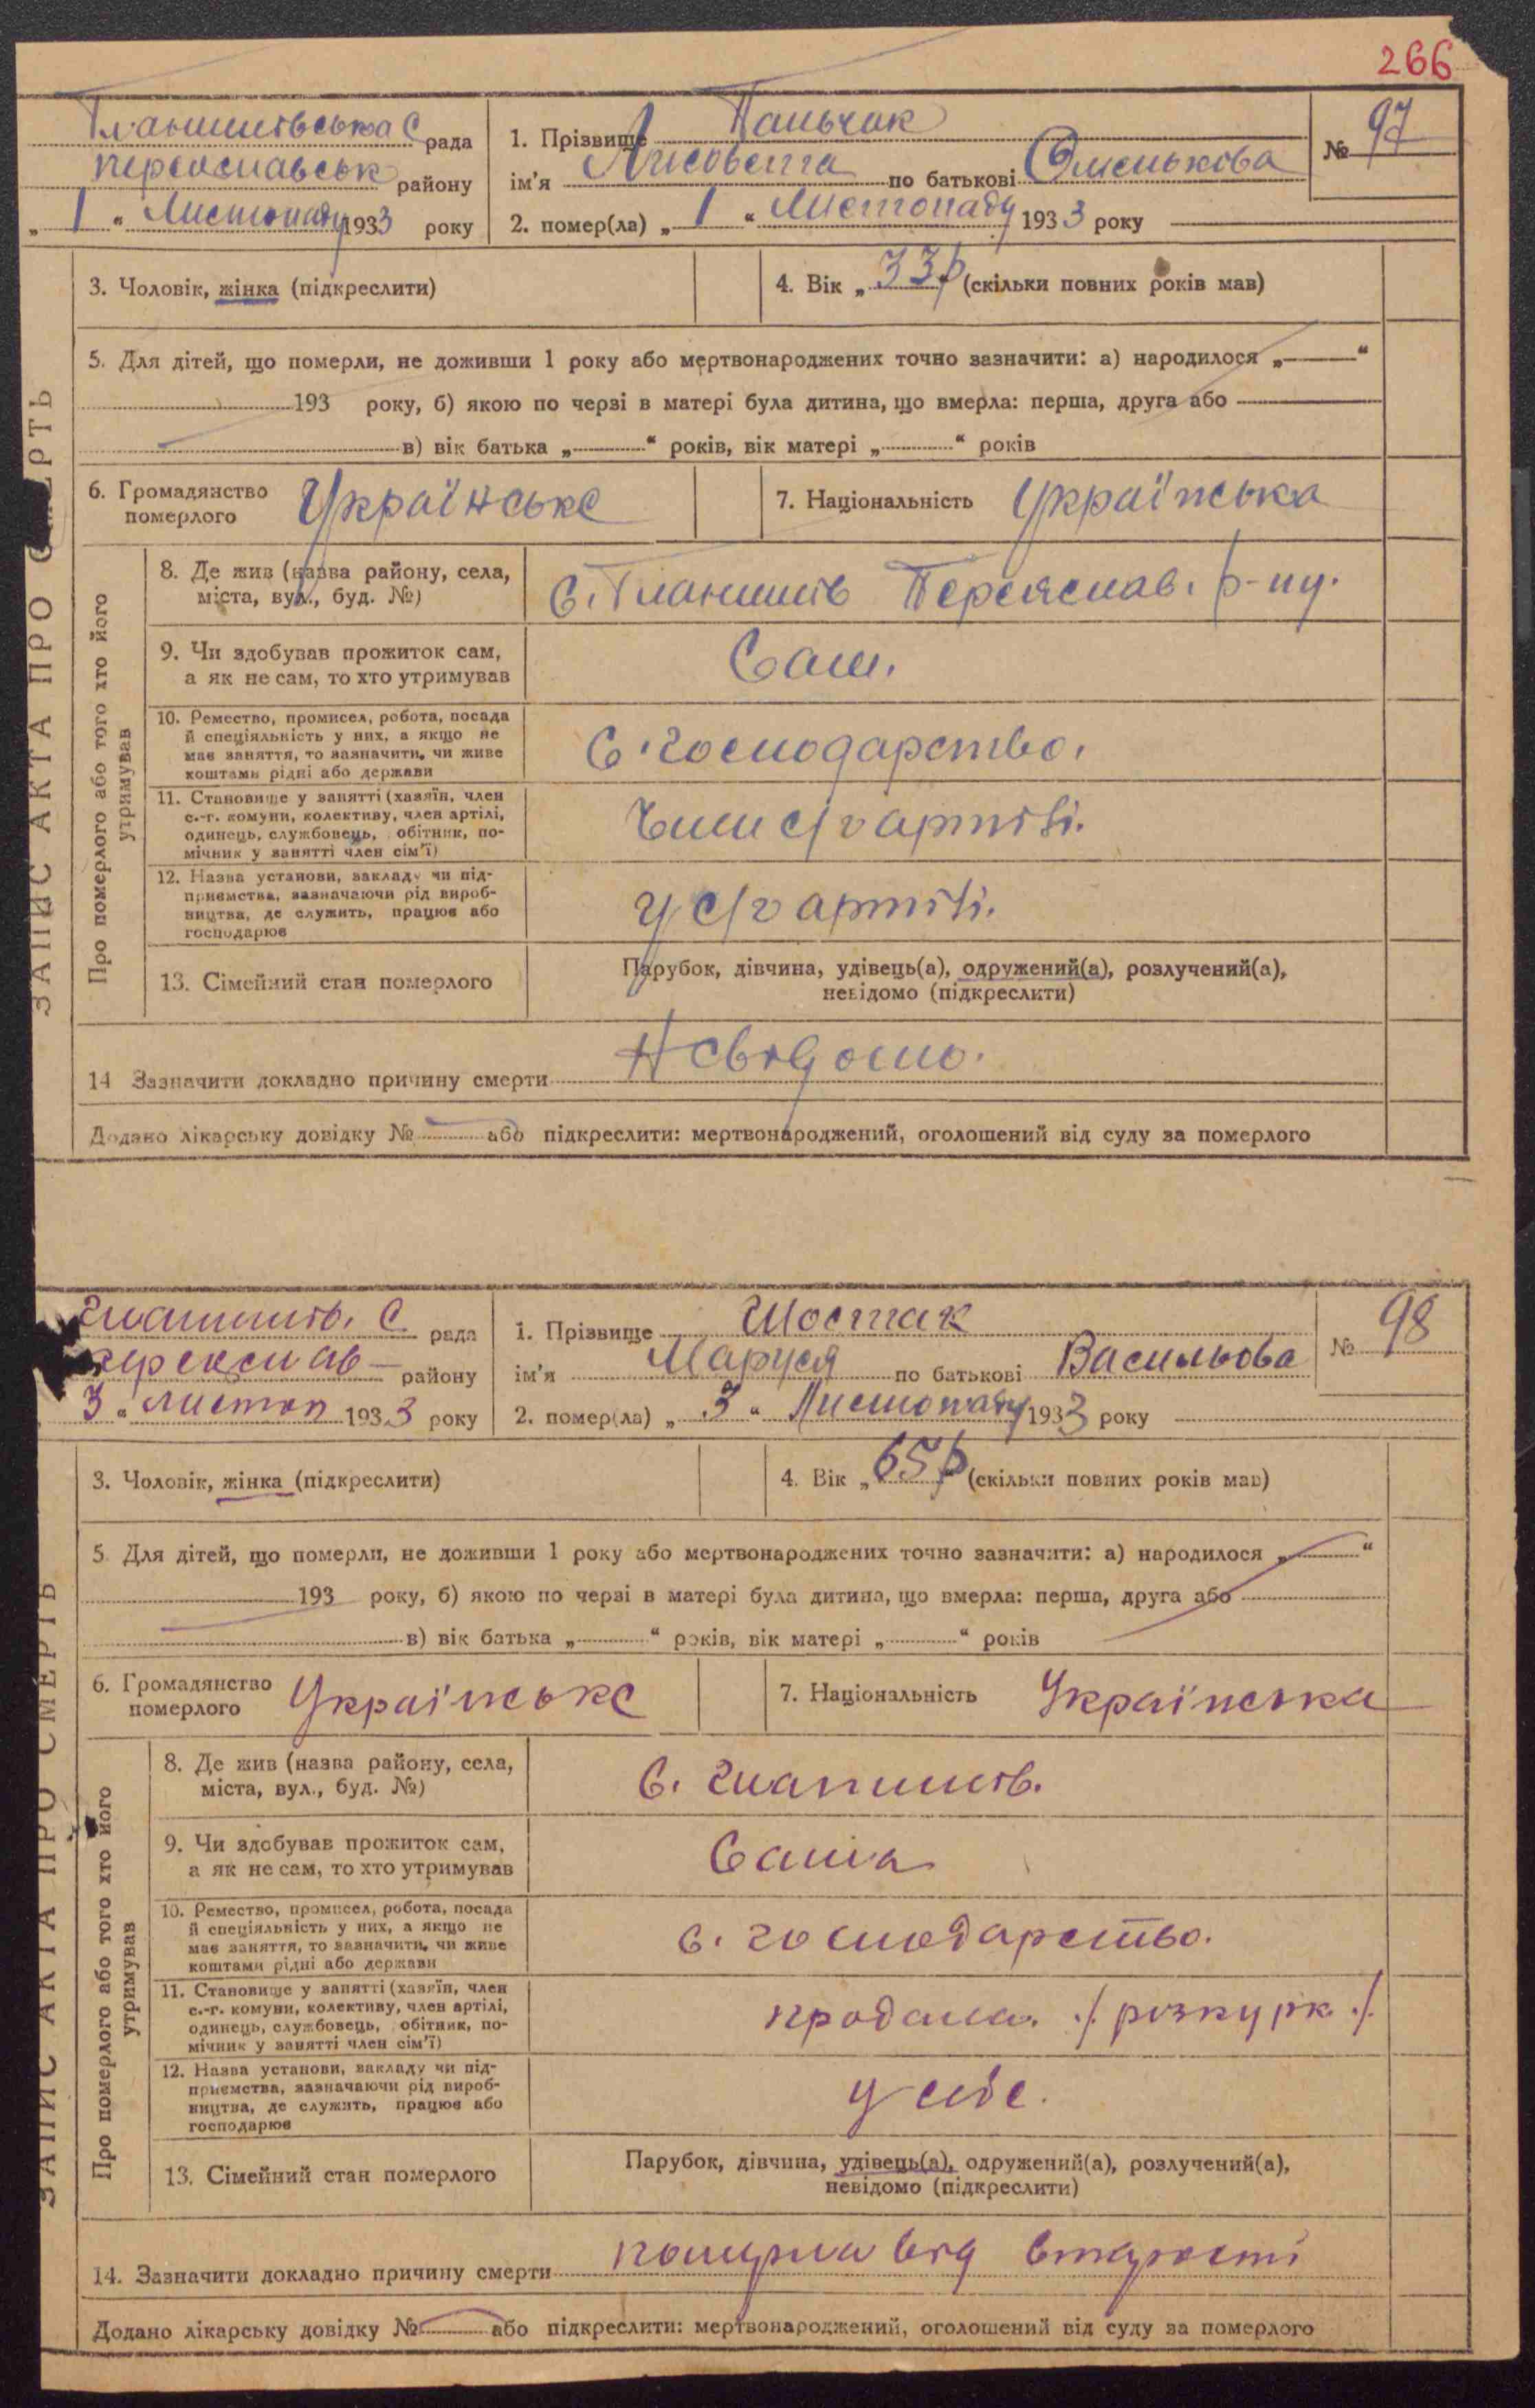 266
Гланишівська С рада
Переяславськ району
„ 1 “ Листопаду 1933 року
1. Прізвище Пальчик
ім'я Лисовета по батькові Омелькова
2. помер(ла) „ 1 “ Листопаду 1933 року
№ 97
3. Чоловік, жінка (підкреслити)
4. Вік „ 33 р (скільки повних років мав)
5. Для дітей, що померли, не доживши 1 року або мертвонароджених точно зазначити: а) народилося „ “
193 року, б) якою по черзі в матері була дитина, що вмерла: перша, друга або
в) вік батька „ “ років, вік матері „ “ років
6. Громадянство померлого Українське
7. Національність Українська
ЗАПИС АКТА ПРО СМЕРТЬ
Про померлого або того хто його утримував
8. Де жив (назва району, села,
міста, вул., буд. №)
С. Гланишів Переяслав. р-ну.
9. Чи здобував прожиток сам,
а як не сам, то хто утримував
Сам.
10. Ремество, промисел, робота, посада
й спеціяльність у них, а якщо не
має заняття, то зазначити, чи живе
коштами рідні або держави
С. господарство.
11. Становище у занятті (хазяїн, член
с.-г. комуни, колективу, член артілі,
одинець, службовець, обітник, по-
мічник у занятті член сім'ї)
Член с/г артілі.
12. Назва установи, закладу чи під-
приємства, зазначаючи рід вироб-
ництва, де служить, працює або
господарює
у с/г артілі.
13. Сімейний стан померлого
Парубок, дівчина, удівець(а), одружений(а), розлучений(а),
невідомо (підкреслити)
14 Зазначити докладно причину смерти Невідомо.
Додано лікарську довідку № або підкреслити: мертвонароджений, оголошений від суду за померлого
Гланишів. С. рада
Переяслав району
3 “ листоп 1933 року
1. Прізвище Шостак
ім'я Маруся по батькові Васильова
2. помер(ла) „ 3 “ Листопаду 1933 року
№ 98
3. Чоловік, жінка (підкреслити)
4. Вік „ 65 р (скільки повних років мав)
5. Для дітей, що померли, не доживши 1 року або мертвонароджених точно зазначити: а) народилося „ “
193 року, б) якою по черзі в матері була дитина, що вмерла: перша, друга або
в) вік батька „ “ років, вік матері „ “ років
6. Громадянство померлого Українське
7. Національність Українська
ЗАПИС АКТА ПРО СМЕРТЬ
Про померлого або того хто його утримував
8. Де жив (назва району, села,
міста, вул., буд. №)
С. Гланишів.
9. Чи здобував прожиток сам,
а як не сам, то хто утримував
Сама
10. Ремество, промисел, робота, посада
й спеціяльність у них, а якщо не
має заняття, то зазначити, чи живе
коштами рідні або держави
с. господарство.
11. Становище у занятті (хазяїн, член
с.-г. комуни, колективу, член артілі,
одинець, службовець, обітник, по-
мічник у занятті член сім'ї)
продала. /розкурк./
12. Назва установи, закладу чи під-
приємства, зазначаючи рід вироб-
ництва, де служить, працює або
господарює
у себе.
13. Сімейний стан померлого
Парубок, дівчина, удівець(а), одружений(а), розлучений(а),
невідомо (підкреслити)
14. Зазначити докладно причину смерти померла від старости
Додано лікарську довідку № або підкреслити: мертвонароджений, оголошений від суду за померлого